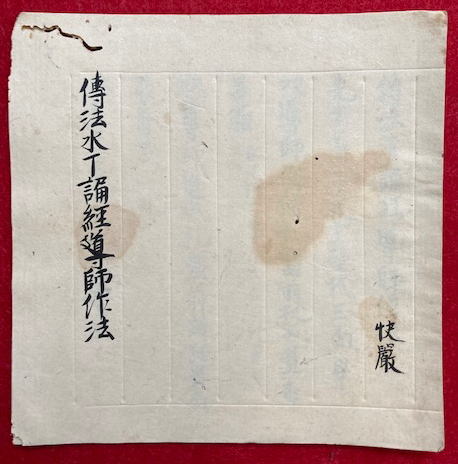 傳法水丁誦經導師作法
快嚴